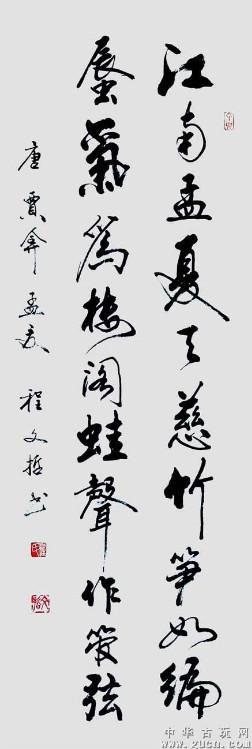 江南孟夏天慈竹笋如编
蜃氣为楼阁蛙聲作管弦
唐 賈弇 孟夏 程文哲书
中华古玩网
www.gucn.com